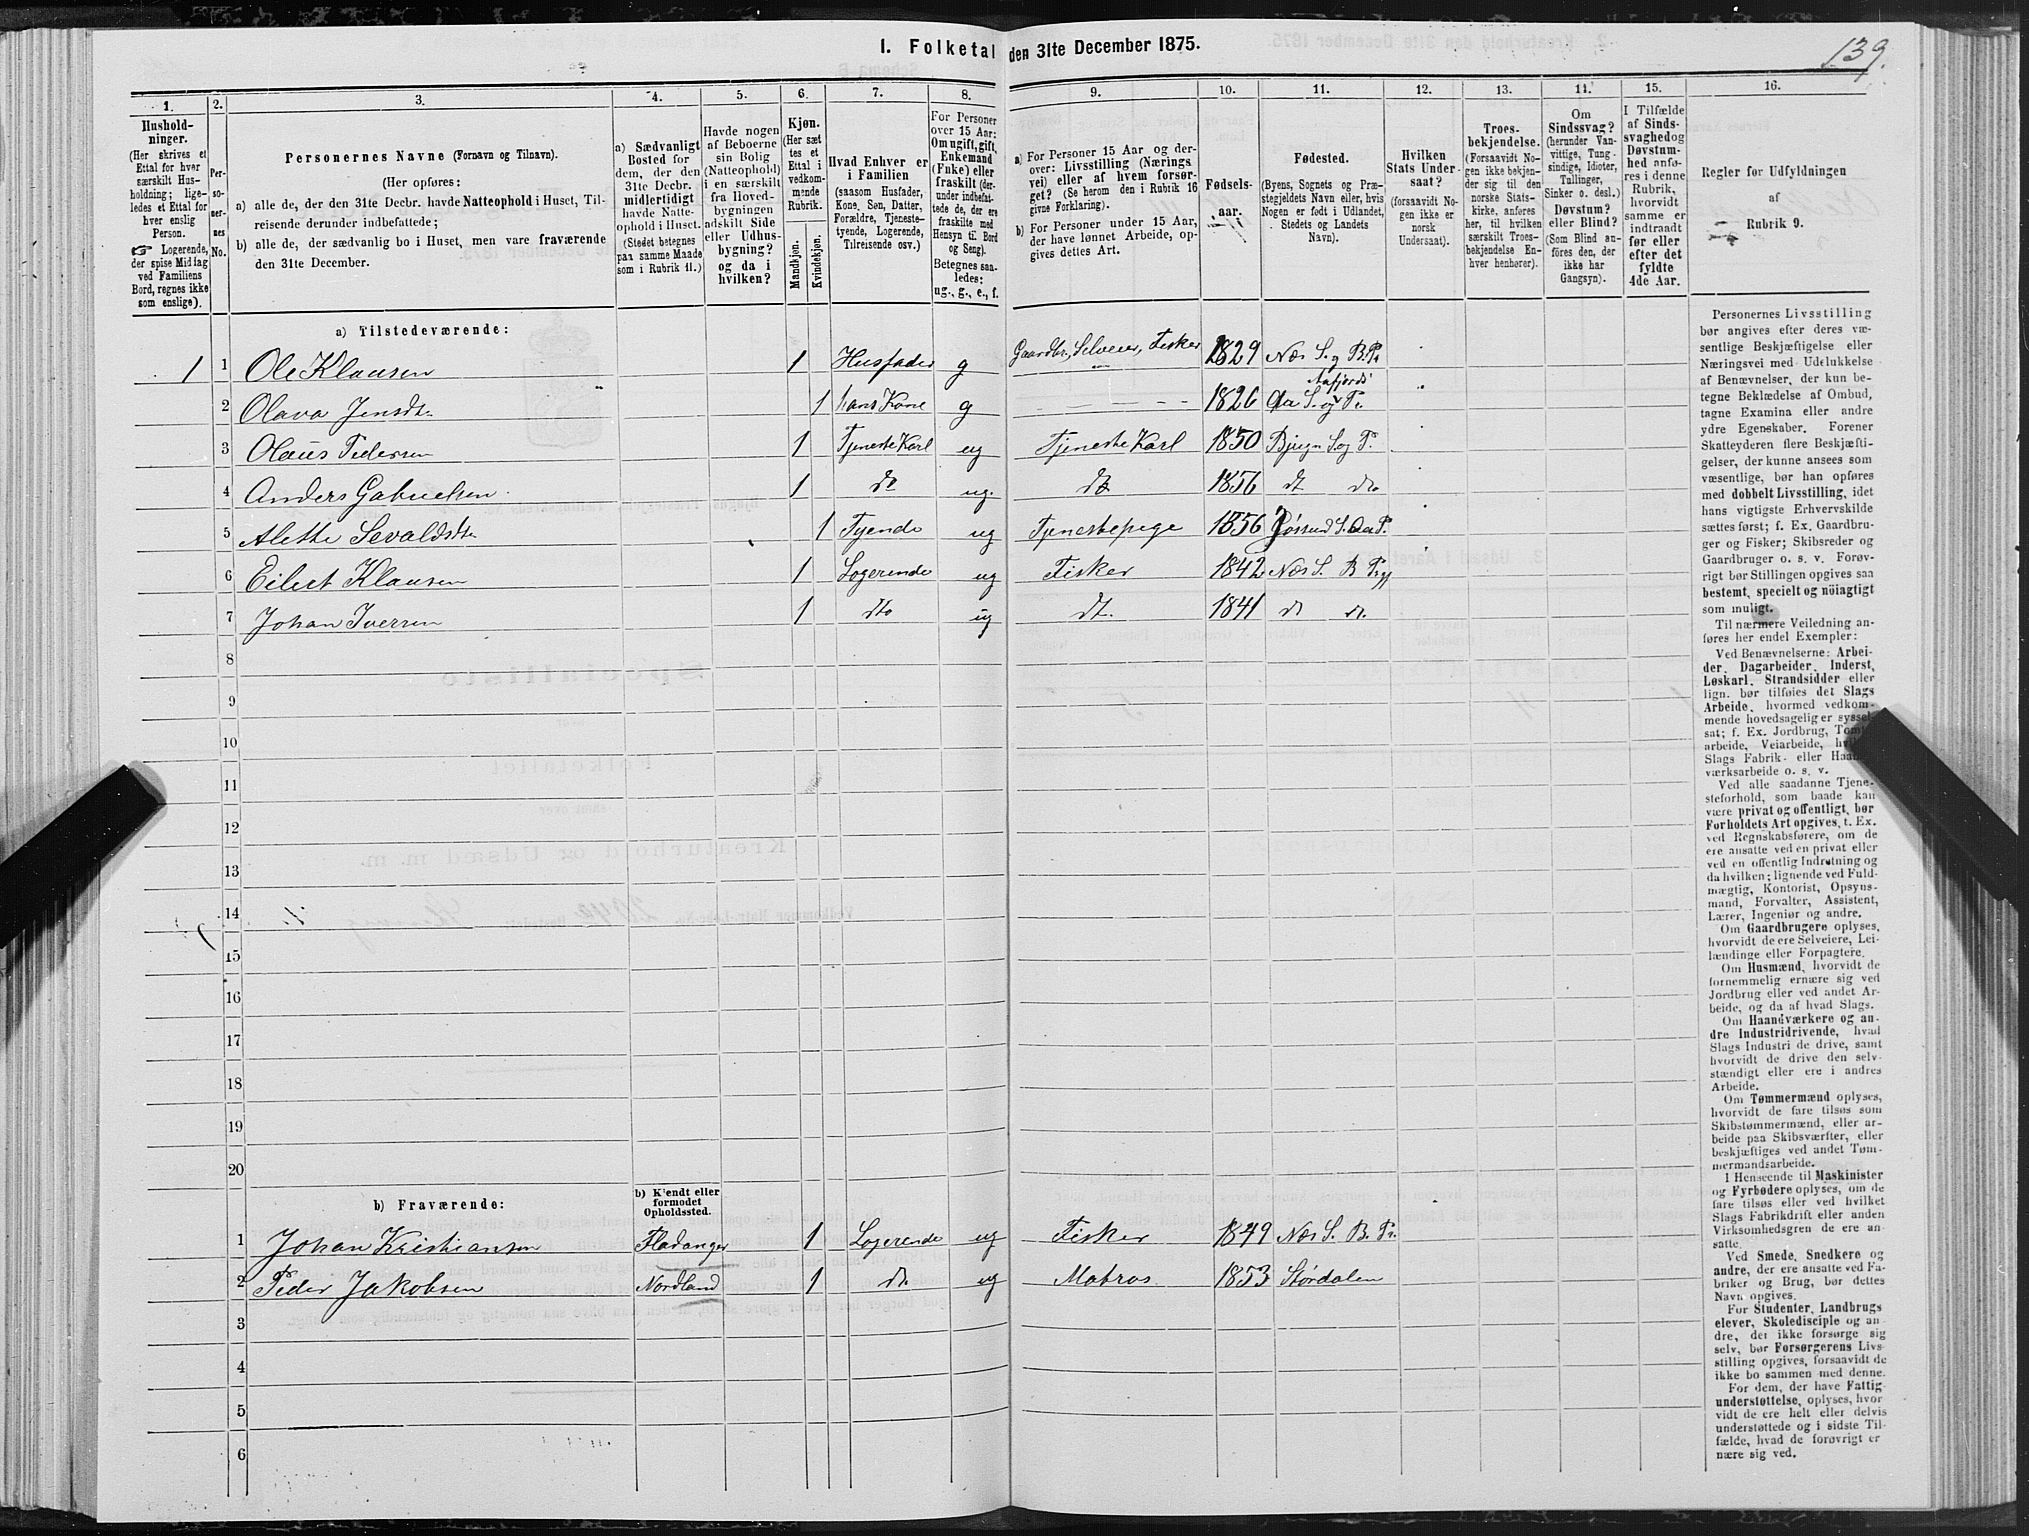 1. Folketal den 31te December 1875.
139.
1.
2.
3.
4.
5.
6.
7.
8.
9.
10.
11.
12.
13.
14.
15.
16.
Hushold-
ninger.
(Her skrives et
Ettal for hver
særskilt Hus-
holdning; lige-
ledes et Ettal for
hver enslig
Person.
☞ Logerende,
der spise Middag
ved Familiens
Bord, regnes ikke
som enslige).
Per-
so-
ner-
nes
No.
Personernes Navne (Fornavn og Tilnavn).
(Her opføres:
a) alle de, der den 31te Decbr. havde Natteophold i Huset, Til-
reisende derunder indbefattede;
b) alle de, der sædvanlig bo i Huset, men vare fraværende
den 31te December.
a) Sædvanligt
Bosted for
dem, der den
31te Decbr.
midlertidigt
havde Natte-
ophold i Huset.
(Stedet betegnes
paa samme Maade
som i Rubrik 11.)
Havde nogen
af Beboerne
sin Bolig
(Natteophold)
i en særskilt
fra Hoved-
bygningen
adskilt Side
eller Udhus-
bygning?
og da i
hvilken?
Kjøn.
(Her sæt
tes et
Ettal i
vedkom-
mende
Rubrik.
Mandkjøn.
Kvindekjøn.
Hvad Enhver er
i Familien
(saasom Husfader,
Kone, Søn, Datter,
Forældre, Tjeneste-
tyende, Logerende,
Tilreisende osv.)
For Personer
over 15 Aar:
Om ugift, gift,
Enkemand
(Enke) eller
fraskilt (der-
under indbefat-
tede de, der ere
fraskilte med
Hensyn til Bord
og Seng).
Betegnes saa-
ledes:
ug., g., e., f.
a) For Personer 15 Aar og der-
over: Livsstilling (Nærings
vei) eller af hvem forsør-
get? (Se herom den i Rubrik 16
givne Forklaring).
b) For Personer under 15 Aar,
der have lønnet Arbeide, op-
gives dettes Art.
Fødsels-
aar.
Fødested.
(Byens, Sognets og Præ-
stegjeldets Navn eller, hvis
Nogen er født i Udlandet,
Stedets og Landets
Navn).
Hvilken
Stats Under-
saat?
(forsaavidt No-
gen ikke er
norsk
Undersaat).
Troes-
bekjendelse.
(Forsaavidt No-
gen ikke bekjen-
der sig til den
norske Stats-
kirke, anføres
her, til hvilken
særskilt Troes-
bekjendelse En-
hver henhører).
Om
Sindssvag?
(herunder Van-
vittige, Tung-
sindige, Idioter,
Tullinger,
Sinker o. desl.)
Døvstum?
eller Blind?
(Som Blind an-
føres den, der
ikke har
Gangsyn).
I Tilfælde
af Sinds-
svaghed og
Døvstum-
hed anfø-
res i denne
Rubrik,
hvorvidt
samme er
indtraadt
før eller
efter det
fyldte
4de Aar.
Regler for Udfyldningen
af
Rubrik 9.
a) Tilstedeværende:
1 1 Ole Klausen 1 Husfader g Gaardbr, Selveier, Fisker 1829 Næs S. og B. Pr
2 Olava Jensdtr 1 hans Kone g 1826 Aafjords Aa S. og Pr.
3 Olaus Pedersen 1 Tjeneste Karl ug Tjeneste Karl 1850 Bjugn S. og P.
4 Anders Gabrielsen 1 do ug. do 1856 dt do
5 Alette Sevaldsdtr 1 Tyende ug Tjenestepige 1856 Jøssund S. Aa P.
6 Eilert Klausen 1 Logerende ug Fisker 1842 Næs S. B Prgj
7 Johan Iversen 1 dto ug dt. 1841 dt do.
8
9
10
11
12
13
14
15
16
17
18
19
20
b) Fraværende:
b) Kjendt eller
formodet
Opholdssted.
1 Johan Kristiansen Fladanger 1 Logerende ug Fisker 1849 Næs S. B. Pr.
2 Peder Jakobsen Nordland 1 do ug Matros 1853 Størdalen
3
4
5
6
Personernes Livsstilling
bør angives efter deres væ-
sentlige Beskjæftigelse eller
Næringsvei med Udelukkelse
af Benævnelser, der kun be-
tegne Beklædelse af Ombud,
tagne Examina eller andre
ydre Egenskaber. Forener
Skatteyderen flere Beskjæfti-
gelser, der kunne ansees som
væsentlige, bør han opføres
med dobbelt Livsstilling, idet
hans vigtigste Erhvervskilde
sættes først; f. Ex. Gaardbru-
ger og Fisker; Skibsreder og
Gaardbruger o. s. v. Forøv-
rigt bør Stillingen opgives saa
bestemt, specielt og nöiagtigt
som muligt.
Til nærmere Veiledning an-
føres her endel Exempler:
Ved Benævnelserne: Arbei-
der, Dagarbeider, Inderst,
Løskarl, Strandsidder eller
lign. bør tilføies det Slags
Arbeide, hvormed vedkom-
mende hovedsagelig er syssel-
sat; f. Ex. Jordbrug, Tomt-
arbeide, Veiarbeide,
Slags Fabrik- eller Haand-
værksarbeide o. s. v.
Ved alle saadanne Tjene-
steforhold, som baade kan
være privat og offentligt, bør
Forholdets Art opgives, t. Ex.
ved Regnskabsførere, om de
ere ansatte ved en privat eller
ved en offentlig Indretning og
da hvilken; lignende ved Fuld-
mægtig, Kontorist, Opsyns-
mand, Forvalter, Assistent,
Lærer, Ingeniør og andre.
Om Gaardbrugere oplyses,
hvorvidt de ere Selveiere, Lei-
lændinge eller Forpagtere.
Om Husmænd, hvorvidt de
fornemmelig ernære sig ved
Jordbrug eller ved andet Ar-
beide, og da af hvad Slags.
Om Haandværkere og an-
dre Industridrivende, hvad
Slags Industri de drive, samt
hvorvidt de drive den selv-
stændigt eller ere i andres
Arbeide.
Om Tømmermænd oplyses,
hvorvidt de fare tilsøs som
Skibstømmermænd, eller ar-
beide paa Skibsværfter, eller
beskjæftiges ved andet Tøm-
mermandsarbeide.
I Henseende til Maskinister
og Fyrbødere oplyses, om de
fare tilsøs eller ved hvilket
Slags Fabrikdrift eller anden
Virksomhedsgren de ere an-
satte.
Ved Smede, Snedkere og
andre, der ere ansatte ved Fa-
briker og Brug, bør dettes
Navn opgives.
For Studenter, Landbrugs
elever, Skoledisciple og an-
dre, der ikke forsørge sig
selv, bør Forsørgerens Livs-
stilling opgives, forsaavidt de
ikke bo sammen med denne.
For dem, der have Fattig-
understøttelse, oplyses, hvor
vidt de ere helt eller delvis
understøttede og i sidste Til-
fælde, hvad de forøvrigt er
nære sig ved.